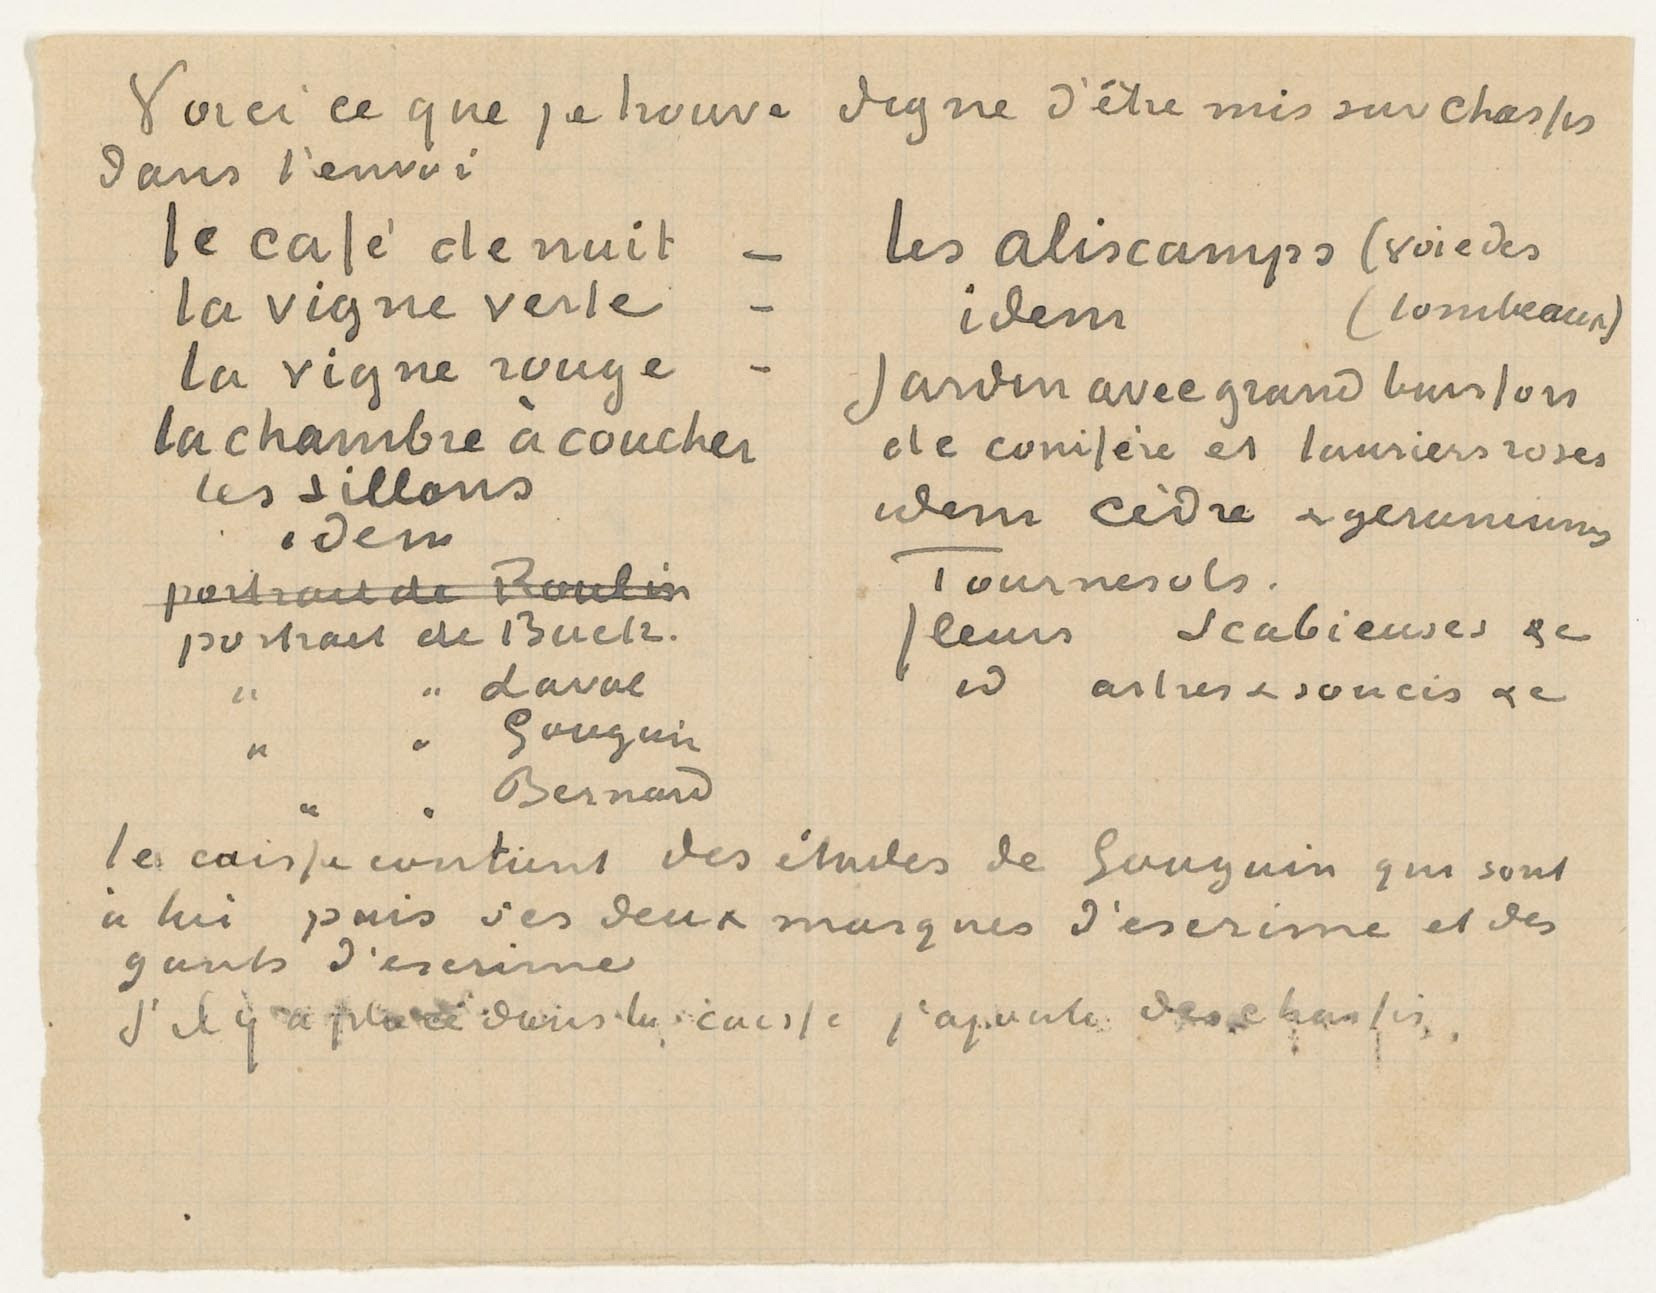 Voici ce que je trouve digne d'être mis sur chassis
dans l'envoi
le café de nuit –
la vigne verte –
la vigne rouge –
la chambre à coucher
les sillons
idem
portrait de Roulin
portrait de Bock.
" " Laval
" " Gauguin
" " Bernard
les aliscamps (voie des
idem (tombeaux)
Jardin avec grand buisson
de conifère et lauriers roses
idem cèdre & geraniums
Tournesols.
fleurs Scabieuses &c
id astres & soucis &c
la caisse contient des études de Gauguin qui sont
à lui puis ses deux masques d'escrime et des
gants d'escrime
S'il y a place dans la caisse j'ajoute des chassis.